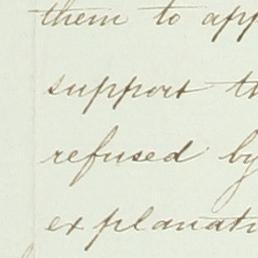 them to app
support th
refused by
explanati